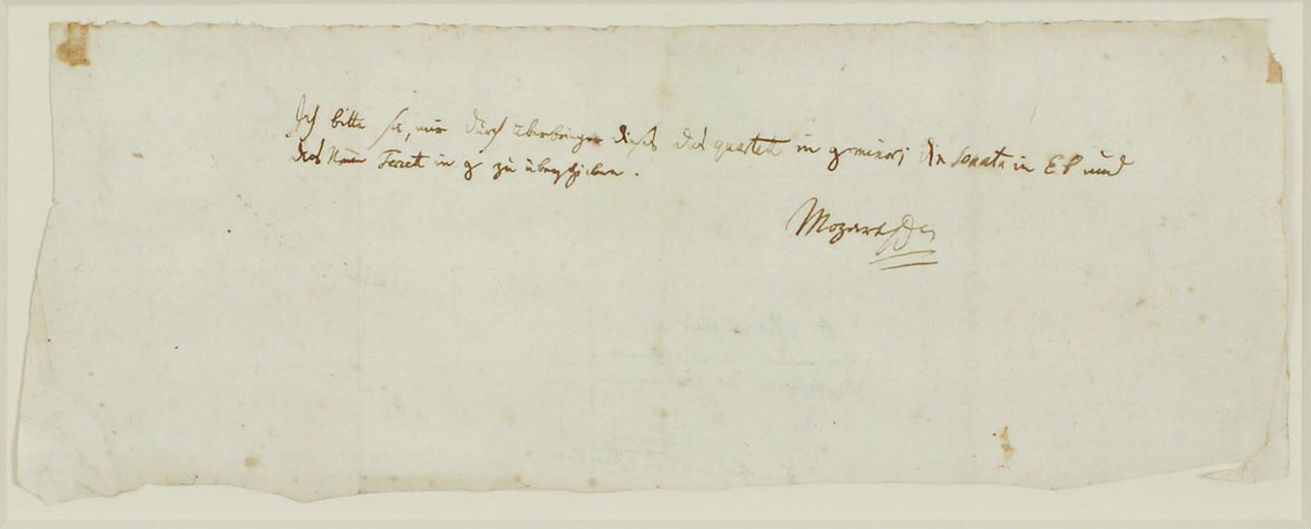 Ich bitte sie, mir durch überbringer dieses das quartett in g minor; die Sonata in Eb und
das Neue Terzett in g zu überschicken.
Mozart